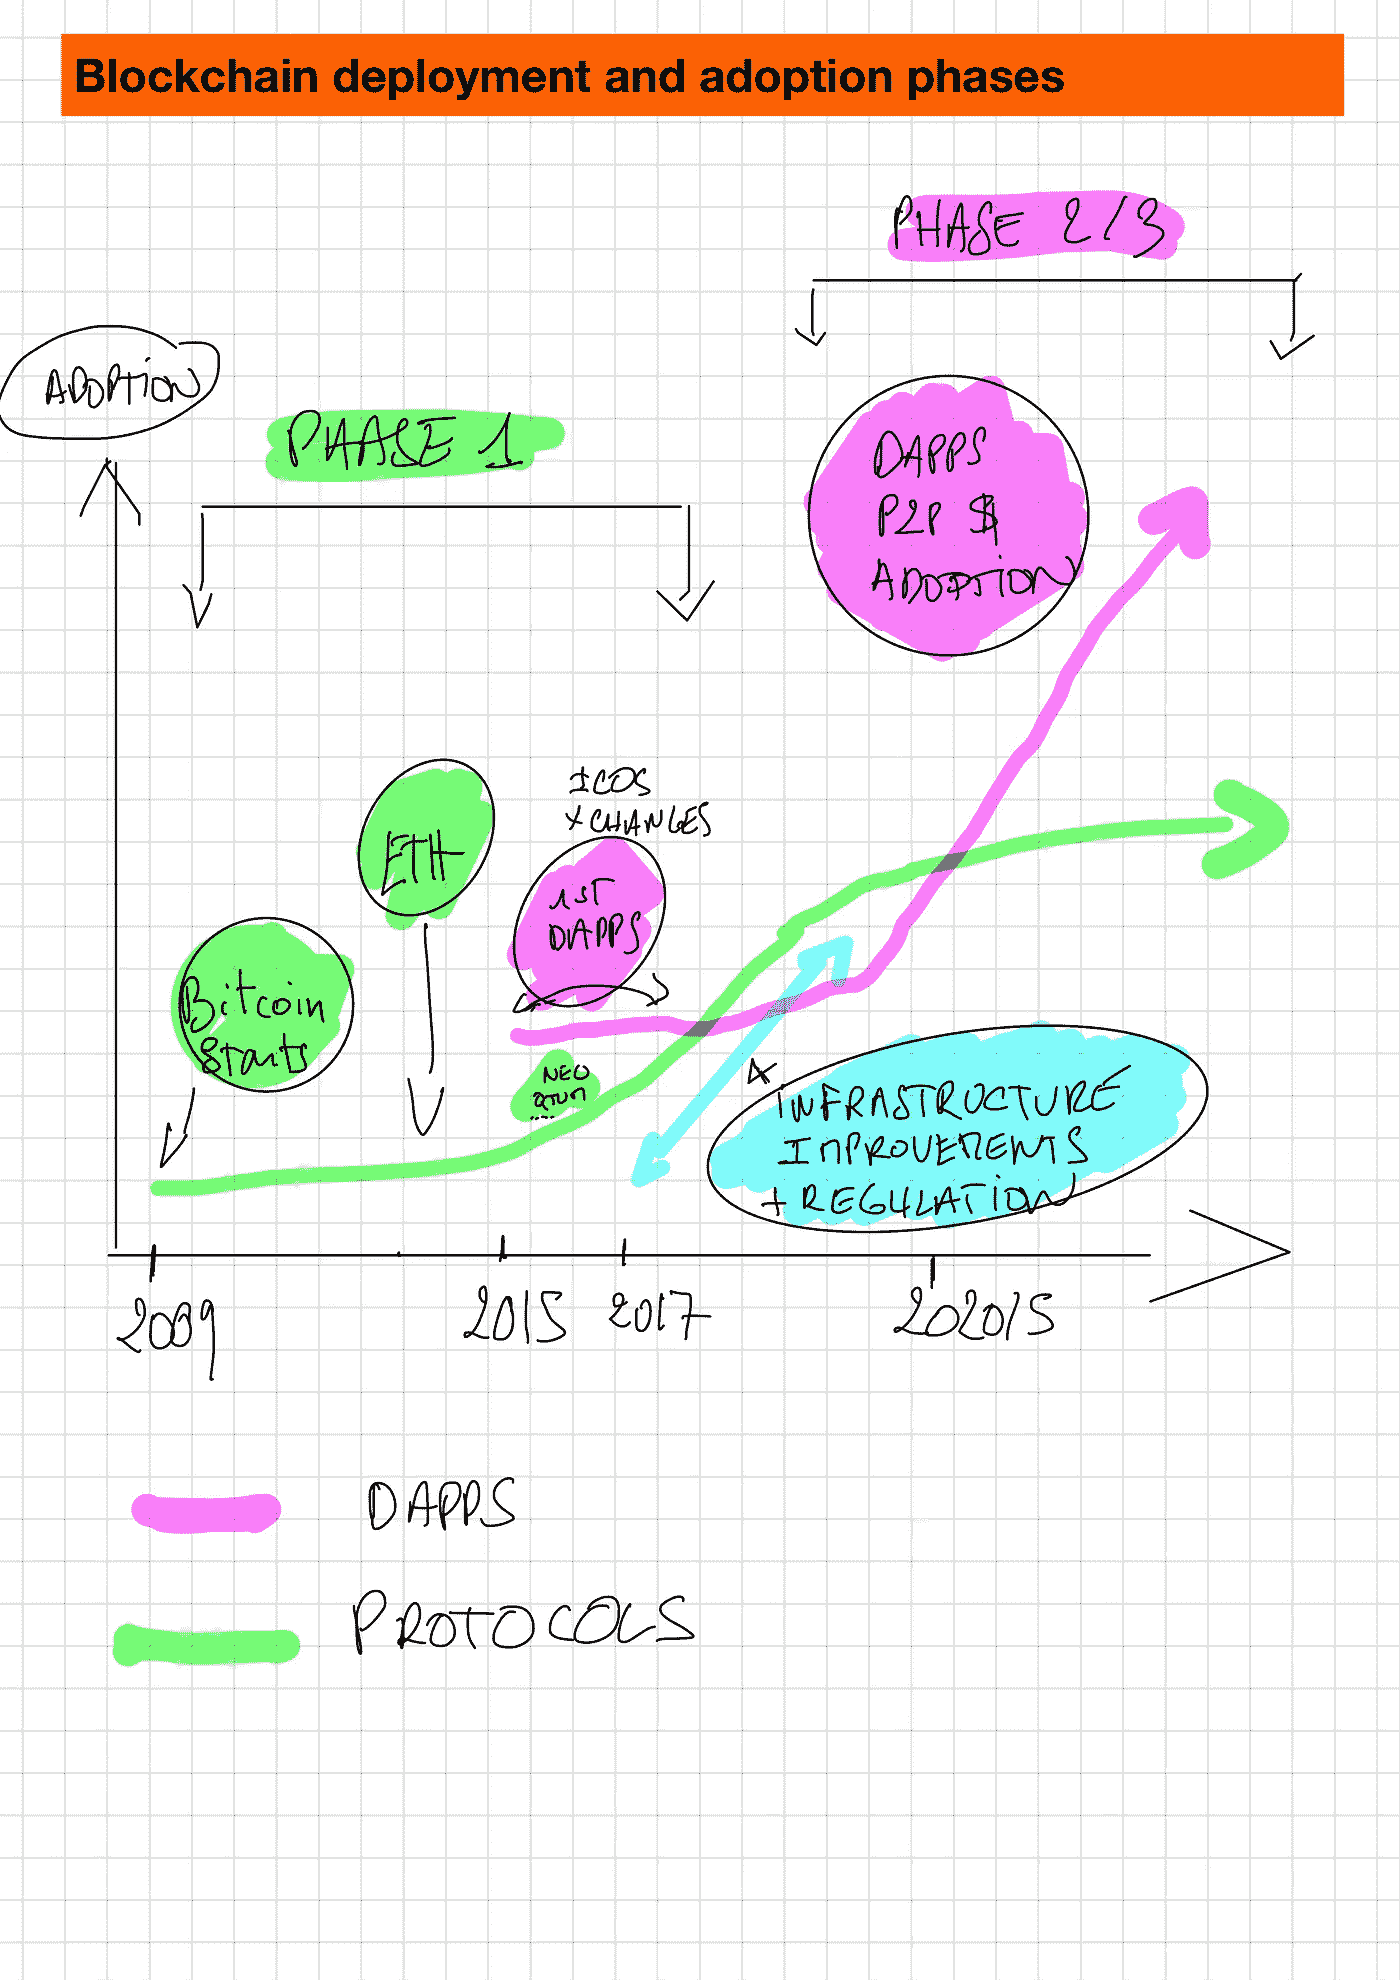 Blockchain deployment and adoption phases
PHASE 2/3
ADOPTION
PHASE 1
DAPPS
P2P $
ADOPTION
ICOS
XCHANGES
ETH
1ST
DAPPS
Bitcoin
Starts
NEO
QTUM
....
INFRASTRUCTURE
IMPROVEMENTS
+ REGULATION
2009
2015
2017
2020/5
DAPPS
PROTOCOLS